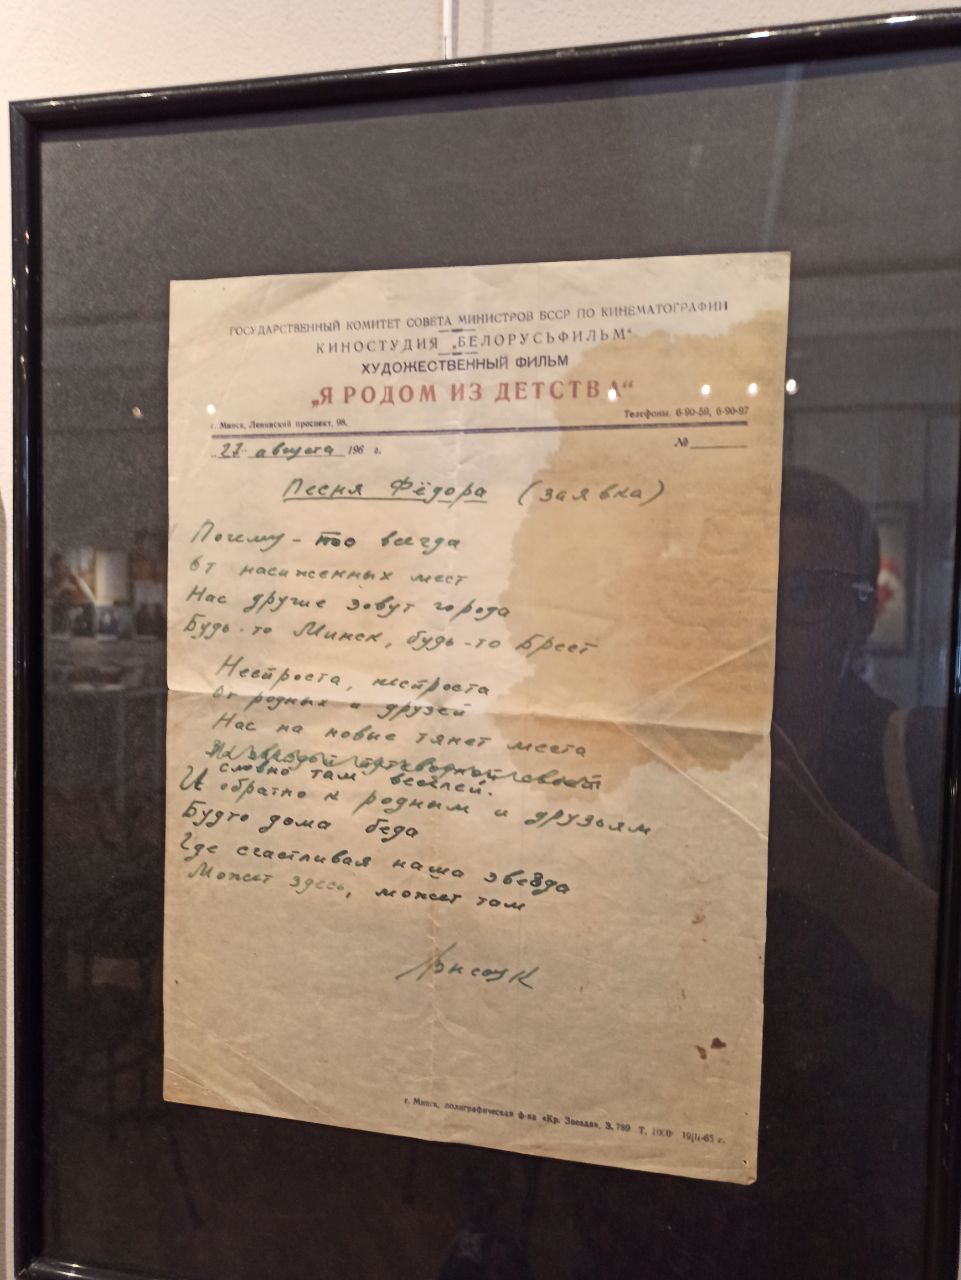 ГОСУДАРСТВЕННЫЙ КОМИТЕТ СОВЕТА МИНИСТРОВ БССР ПО КИНЕМАТОГРАФИИ
КИНОСТУДИЯ „БЕЛОРУСЬФИЛЬМ“
ХУДОЖЕСТВЕННЫЙ ФИЛЬМ
„Я РОДОМ ИЗ ДЕТСТВА“
г. Минск, Ленинский проспект, 98. Телефоны: 6-90-59, 6-90-97
„27“ августа 196 г. №
Песня Фёдора (заявка)
Почему-то всегда
От насиженных мест
Нас другие зовут города
Будь-то Минск, будь-то Брест
Неспроста, неспроста
От родных и друзей
Нас на новые тянет места
Словно там веселей.
И обратно к родным и друзьям
Будто дома беда
Где счастливая наша звезда
Может здесь, может там
г. Минск, полиграфическая ф-ка «Кр. Звезда», З. 789 Т. 1000